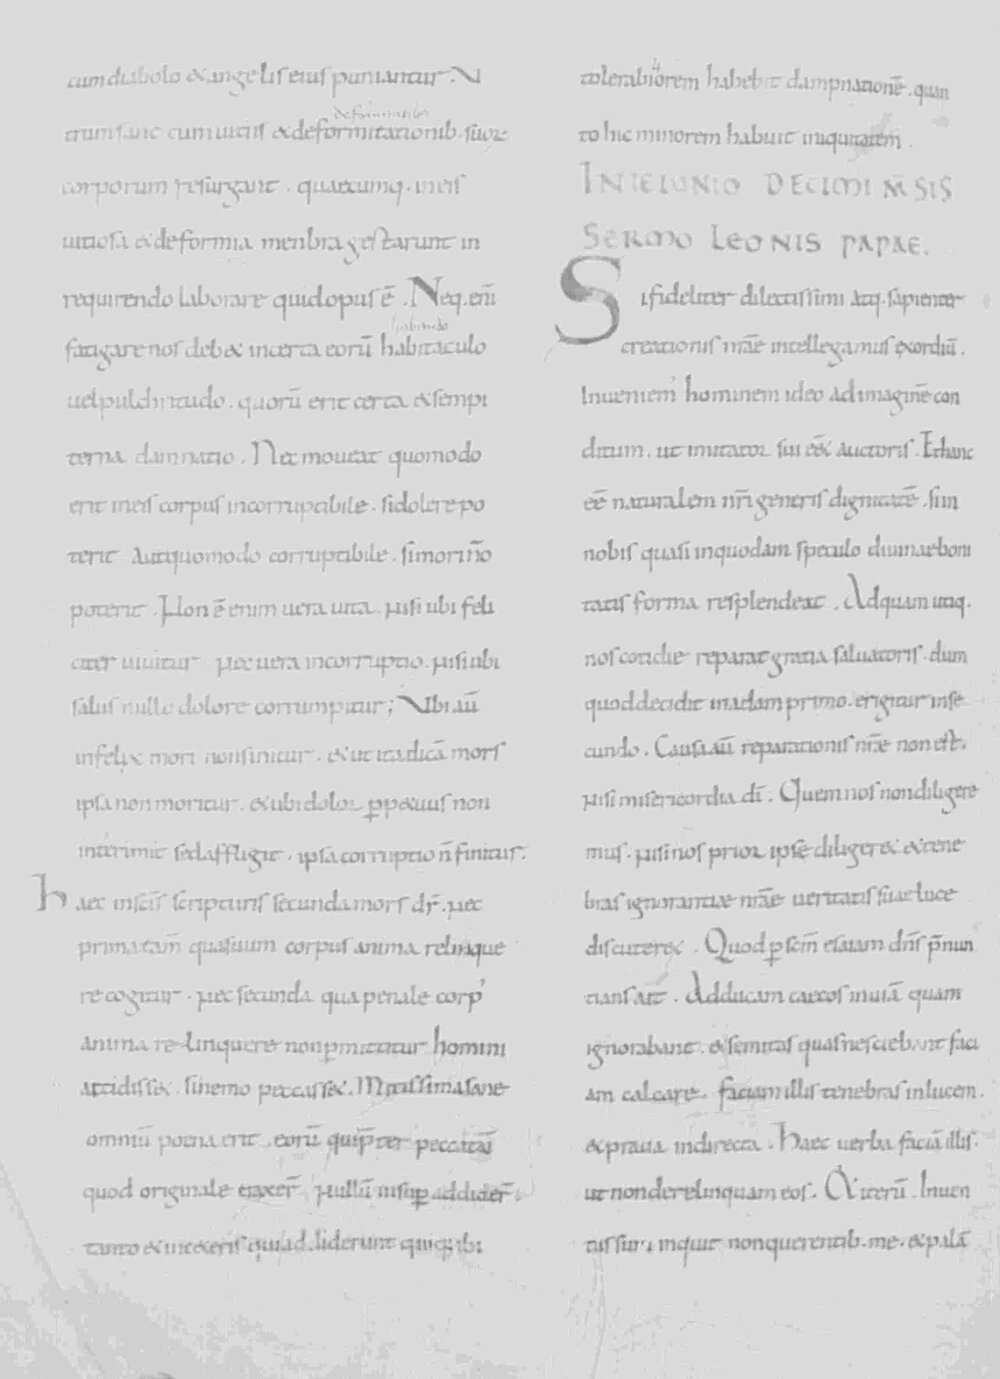 cum diabolo & angelis eius puniantur. V
deformitatib
trum sane cum uitiis & deformitationib. suoꝝ
corporum resurgant. quaecumq. in eis
uitiosa & deformia menbra gestarunt in
requirendo laborare quid opus ē. Neq. eni̅
habitudo
fatigare nos deb& incerta eorū habitaculo
uel pulchritudo. quorū erit certa & sempi
terna damnatio. Nec moueat quomodo
erit in eis corpus incorruptibile. si dolere po
terit. Aut quomodo corruptibile. si mori n̄o
poterit. Non ē enim uera uita. nisi ubi feli
citer uiuitur. nec uera incorruptio. nisi ubi
salus nullo dolore corrumpitur; Vbi aū
infelix mori non sinitur. & ut ita dicā mors
ipsa non moritur. & ubi dolor ꝑp&uus non
interimit sed affligit. ipsa corruptio n̄ finitur.
haec in sc̄is scripturis secunda mors dr̄. nec
prima tam̄ qua suum corpus anima relinque
re cogitur. nec secunda qua penale corp'
anima relinquere non ꝑmittitur homini
accidiss&. si nemo peccass&. Mitissima sane
omniū poena erit. eorū qui p̄ter peccatū
quod originale traxer̄. nullū insuꝑ addider̄.
tanto & in ceteris qui addiderunt quisq; ibi
tolerabiliorem habebit dampnationē. quan
to hic minorem habuit iniquitatem.
IN IEIUNIO DECIMI M̄SIS
SERMO LEONIS PAPAE.
Si fideliter dilectissimi atq. sapienter
creationis nr̄ae intellegamus exordiū.
Inueniem' hominem ideo ad imaginē con
ditum. ut imitator sui ēet auctoris. Et hanc
ēe naturalem nr̄i generis dignitatē. si in
nobis quasi in quodam speculo diuinae boni
tatis forma resplendeat. Ad quam utiq.
nos cotidie reparat gratia saluatoris. dum
quod decidit in adam primo. erigitur in se
cundo. Causa aū reparationis nr̄ae non est.
nisi misericordia dī. Quem nos non diligere
mus. nisi nos prior ipse diliger&. & tene
bras ignorantiae nr̄ae ueritatis suae luce
discuter&. Quod ꝑ sc̄m esaiam dn̄s p̄nun
tians ait. Adducam caecos in uiā quam
ignorabant. & semitas quas nesciebant faci
am calcare. faciam illis tenebras in lucem.
& praua in directa. Haec uerba faciā illis.
ut non derelinquam eos. Et iterū. Inuen
tus sum inquit non querentib. me. & palā